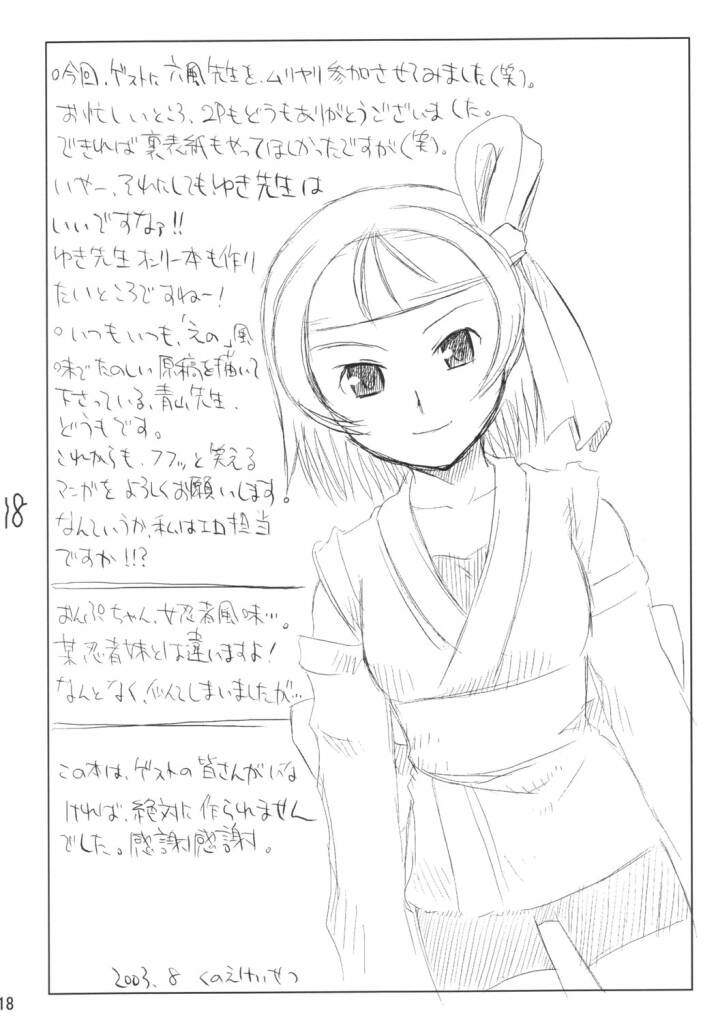 ○今回、ゲストに六風先生を、ムリヤリ参加させてみました(笑)。
お忙しいところ、2Pもどうもありがとうございました。
できれば裏表紙もやってほしかったですが(笑)。
いやー、それにしてもゆき先生は
いいですなァ!!
ゆき先生オンリー本も作り
たいところですねー!
○いつもいつも、「えの」風
味でたのしい原稿を描いて
下さっている、青山先生、
どうもです。
これからも、フフッと笑える
マンガをよろしくお願いします。
なんていうか、私はエロ担当
ですか!!?
おんぷちゃん、女忍者風味…。
某忍者妹とは違いますよ!
なんとなく、似てしまいましたが…
この本は、ゲストの皆さんがいな
ければ、絶対に作られません
でした。感謝感謝。
2003.8 くのえけいせつ
18
18